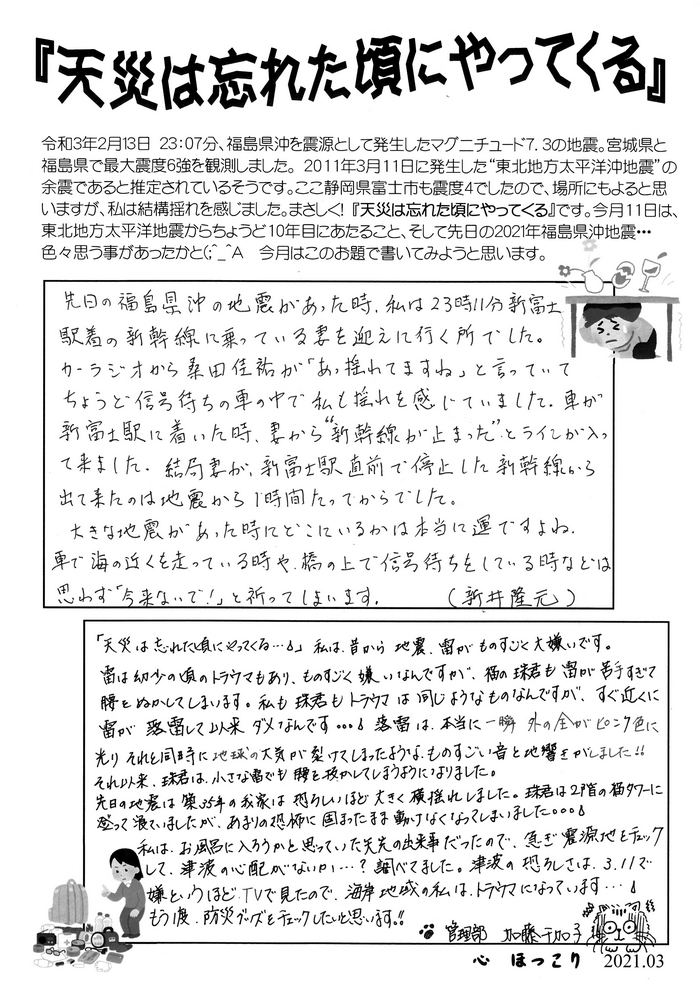 『天災は忘れた頃にやってくる』
令和3年2月13日 23:07分、福島県沖を震源として発生したマグニチュード7.3の地震。宮城県と
福島県で最大震度6強を観測しました。 2011年3月11日に発生した“東北地方太平洋沖地震”の
余震であると推定されているそうです。ここ静岡県富士市も震度4でしたので、場所にもよると思
いますが、私は結構揺れを感じました。まさしく! 『天災は忘れた頃にやってくる』です。今月11日は、
東北地方太平洋地震からちょうど10年目にあたること、そして先日の2021年福島県沖地震…
色々思う事があったかと(;^_^A 今月はこのお題で書いてみようと思います。
先日の福島県沖の地震があった時、私は23時11分新富士
駅着の新幹線に乗っている妻を迎えに行く所でした。
カーラジオから桑田佳祐が「あっ揺れてますね」と言っていて
ちょうど信号待ちの車の中で私も揺れを感じていました。車が
新富士駅に着いた時、妻から“新幹線が止まった”とラインが入っ
て来ました。結局妻が、新富士駅直前で停止した新幹線から
出て来たのは地震から1時間たってからでした。
大きな地震があった時にどこにいるかは本当に運ですよね。
車で海の近くを走っている時や、橋の上で信号待ちをしている時などは
思わず「今来ないで!」と祈ってしまいます。 (新井隆元)
「天災は忘れた頃にやってくる…」 私は、昔から 地震、雷が ものすごく大嫌いです。
雷は幼少の頃のトラウマもあり、ものすごく 嫌いなんですが、猫の珠君も 雷が苦手すぎて
腰をぬかしてしまいます。私も 珠君も トラウマは 同じようなものなんですが、すぐ近くに
雷が 落雷して以来 ダメなんです… 落雷は、本当に一瞬 外の全がピンク色に
光り それと同時に 地球の大気が 裂けてしまったような、ものすごい音と地響きがしました!!
それ以来、珠君は、小さな雷でも 腰を抜かしてしまうようになりました。
先日の地震は 築35年の我家は 恐ろしいほど 大きく 横揺れしました。珠君は2階の猫タワーに
登って寝ていましたが、あまりの恐怖に 固まったまま動けなくなってしまいました…
私は、お風呂に入ろうかと思っていた矢先の出来事だったので、急ぎ 震源地をチェック
して、津波の心配がないか…? 調べてました。津波の 恐ろしさは、3.11で
嫌というほど TVで見たので、海岸地域の私は、トラウマになっています…
もう1度、防災グッズをチェックしたいと思います!!
管理部 加藤千加子
心 ほっこり 2021.03